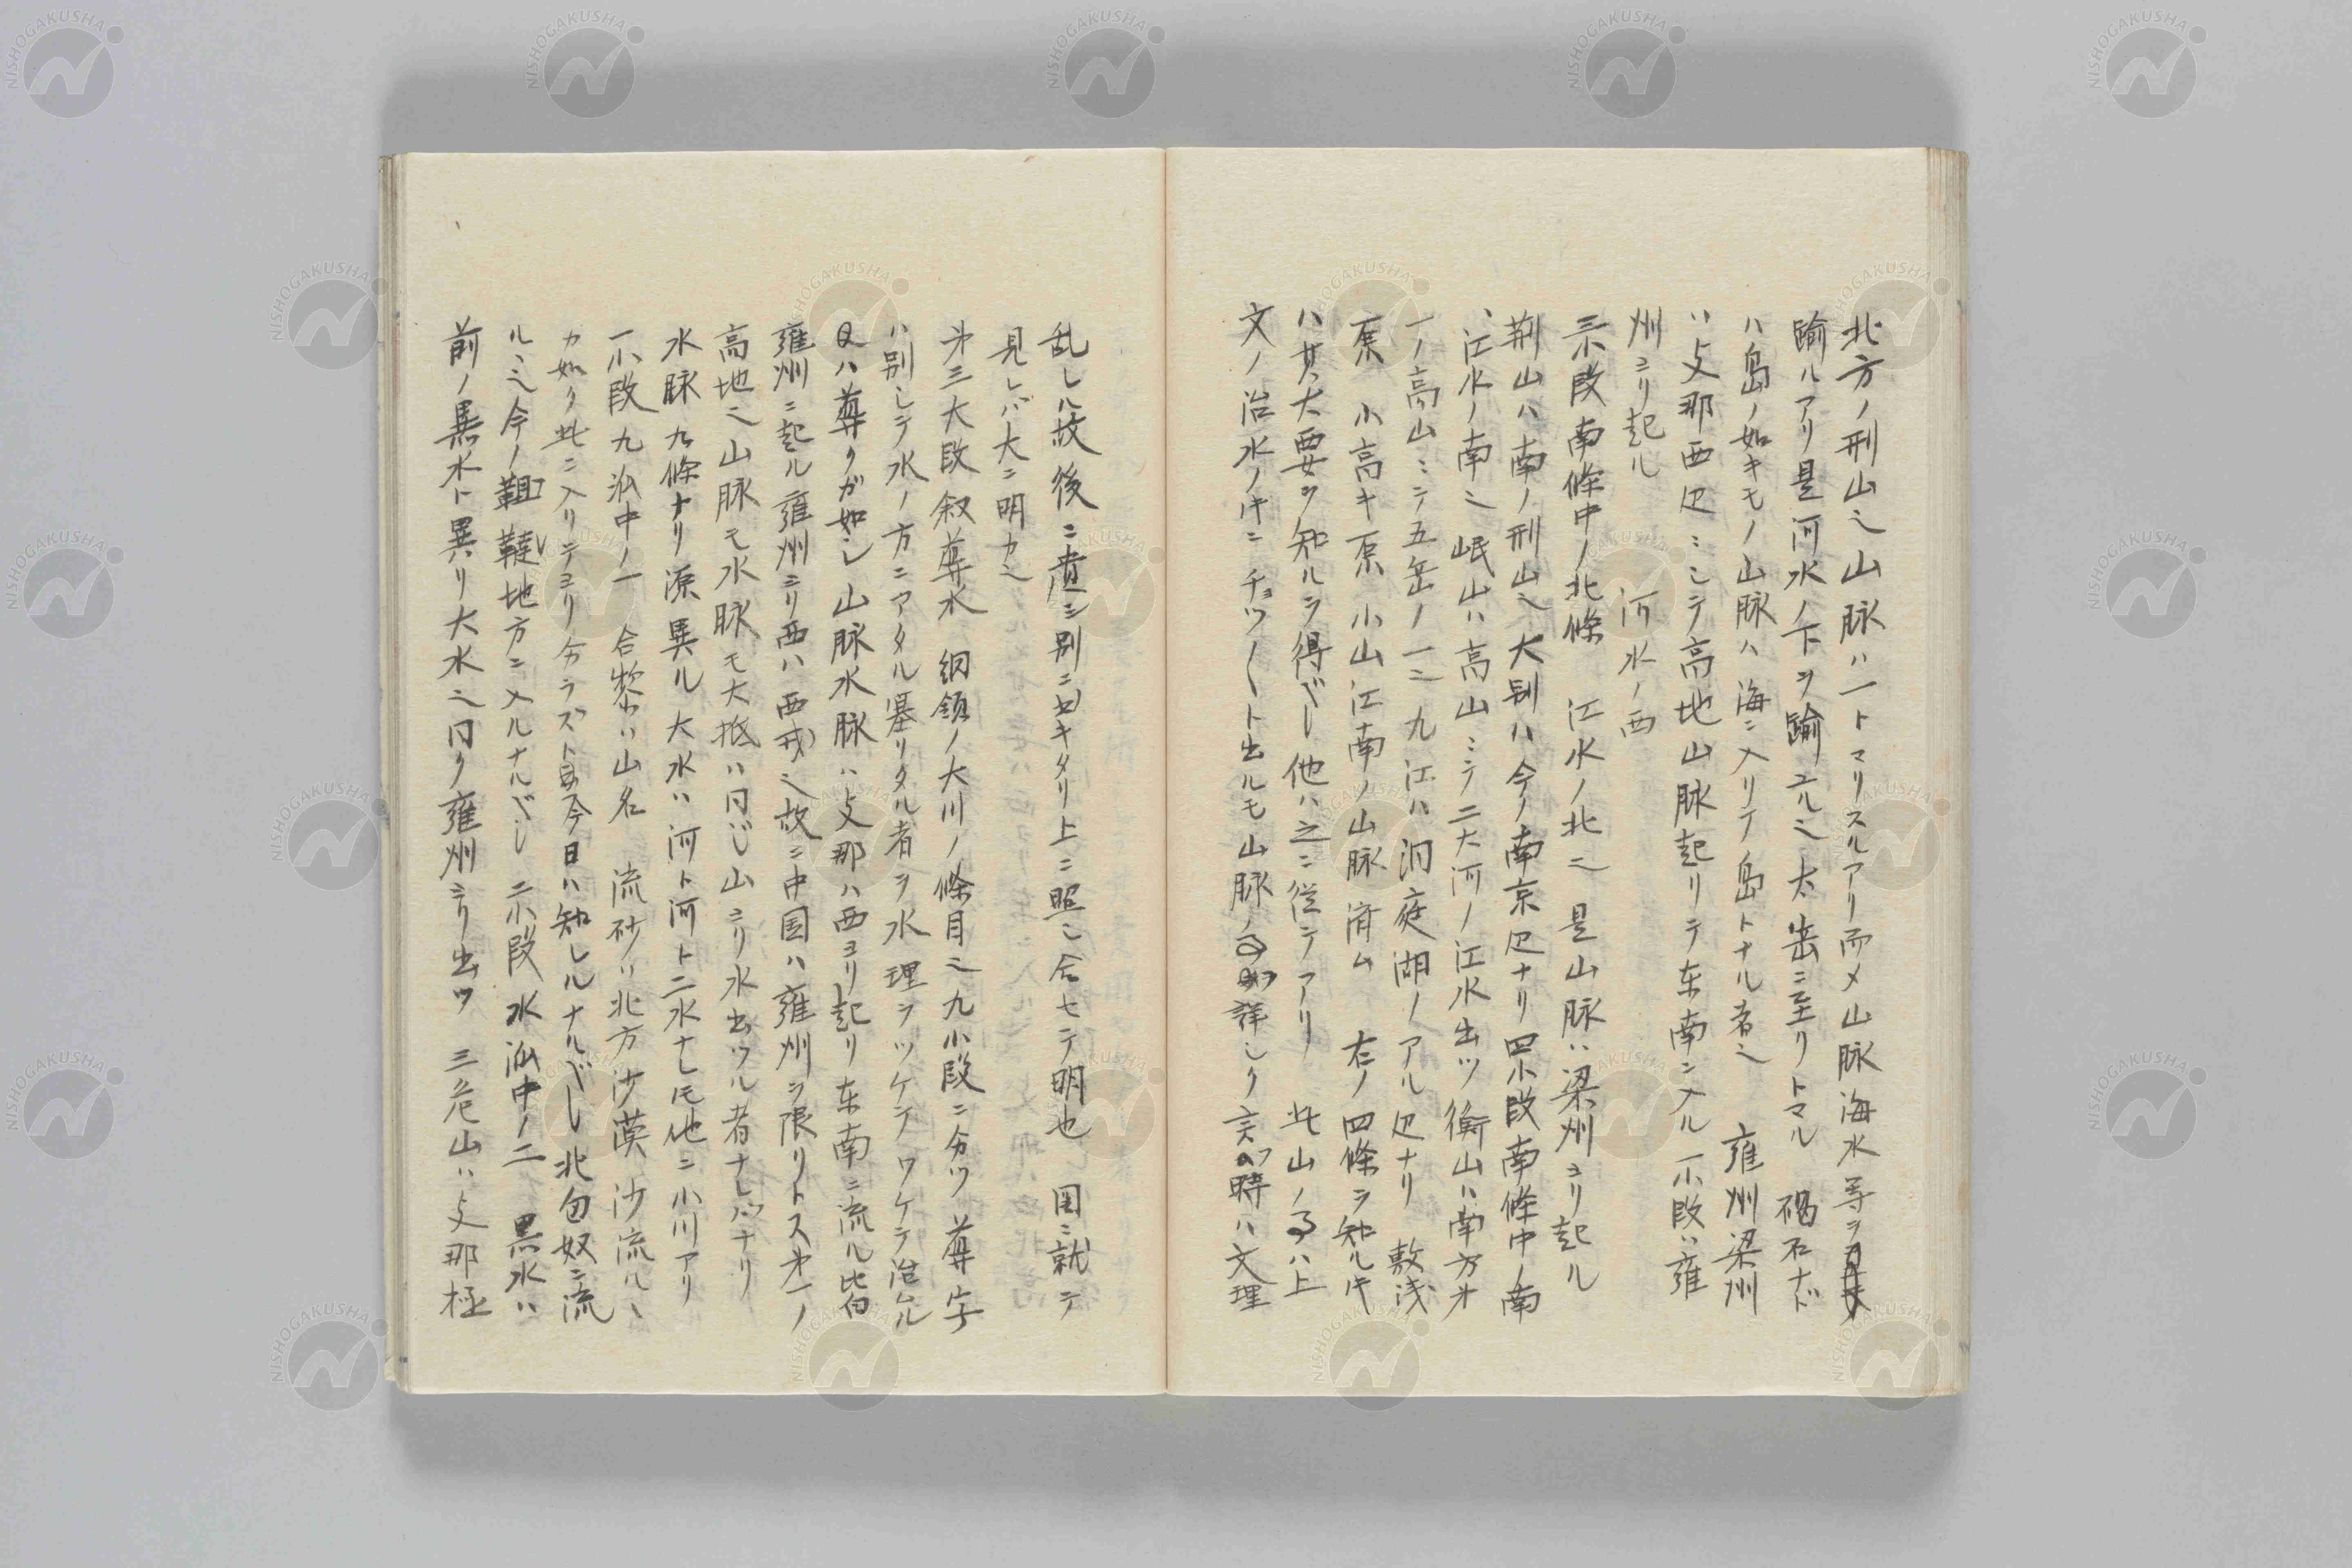 北方ノ刑山也山脈ハ一トマリスルアリ而メ山脈海水等ヲ
踰ルアリ是河水ノ下ヲ踰ユル也太岳ニ至リトマル 碣石ナド
ハ島ノ如キモノ山脈ハ海ニ入リテ島トナル者也 雍州梁州
ハ支那西辺ニシテ高地山脈起リテ东南ニ入ル 一小段ハ雍
州ヨリ起ル 河水ノ西
三小段南條中ノ北條 江水ノ北也 是山脈ハ梁州ヨリ起ル
荊山ハ南ノ刑山也大别ハ今ノ南京辺ナリ四小段南條中ノ南
ハ江水ノ南也 岷山ハ高山ニテ二大河ノ江水出ツ衡山ハ南方才
一ノ高山ニテ五岳ノ一也 九江ハ洞庭湖ノアル辺ナリ 敷浅
原 小高キ原 小山江南ノ山脈済ム 右ノ四條ヲ知ルキ
ハ其大要ヲ知ルヲ得ベシ他ハ之ニ従テアリ 此山ノ事ハ上
文ノ治水ノ時ニチョツ〳〵ト出ルモ山脈ノ事 詳シク言フ時ハ文理
乱レル故後ニ 別ニ キタリ上ニ照シ合セテ明也 図ニ就テ
見レバ大ニ明カ也
才三大段叙導水 綱領ノ大川ノ條目也九小段ニ分ツ 導字
ハ别シテ水ノ方ニアタル塞リタル者ヲ水理ヲツケテワケテ治ムル
又ハ導クガ如シ 山脈水脈ハ支那ハ西ヨリ起リ东南ニ流ル比皆
雍州ニ起ル雍州ヨリ西ハ西戎也故ニ中国ハ雍州ヲ限リトス才一ノ
高地也山脈モ水脈モ大抵ハ同ジ山ヨリ水出ツル者ナレバナリ
水脈九條ナリ源異ル大水ハ河ト河ト二水ナレ𪜈他ニ小川アリ
一小段九 中ノ一 合黎ハ山名 流砂ハ北方沙漠 沙流ルヽ
カ如ク此ニ入リテヨリ分ラズト 今日ハ知レルナルベシ北匈奴ニ流
ルヽ也今ノ韃靼地方ニ入ルナルベシ 二小段 水 中ノ二 黒水ハ
前ノ黒水ト異リ大水也同ク雍州ヨリ出ツ 三危山ハ支那極